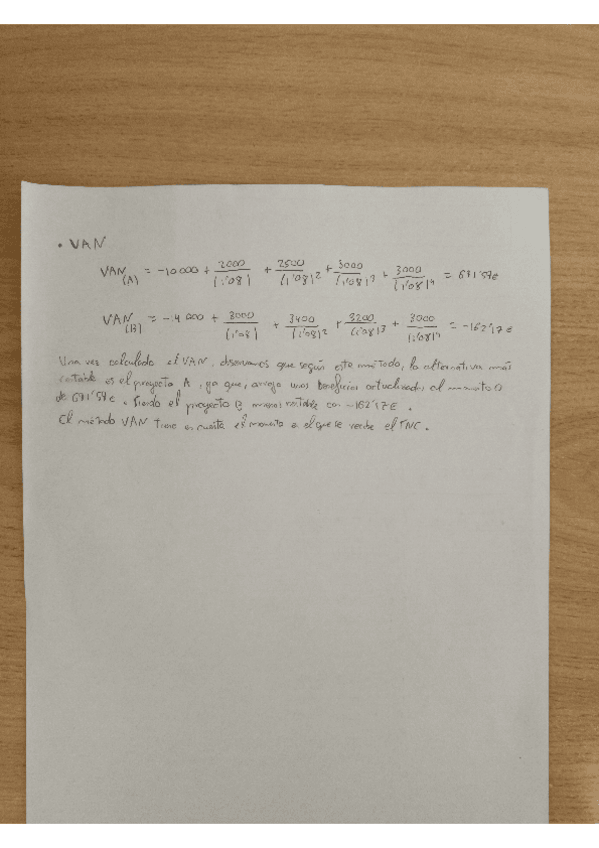 • VAN
VAN(A) = -10 000 + 2000/(1'08) + 2500/(1'08)² + 3000/(1'08)³ + 3000/(1'08)⁴ = 691'59€
VAN(B) = -14 000 + 3000/(1'08) + 3400/(1'08)² + 3200/(1'08)³ + 3000/(1'08)⁴ = -162'17€
Una vez calculado el VAN, observamos que según este método, la alternativa más
rentable es el proyecto A, ya que, arroja unos beneficios actualizados al momento 0
de 691'59€. Siendo el proyecto B menos rentable con -162'17€.
El método VAN tiene en cuenta el momento en el que se recibe el FNC.